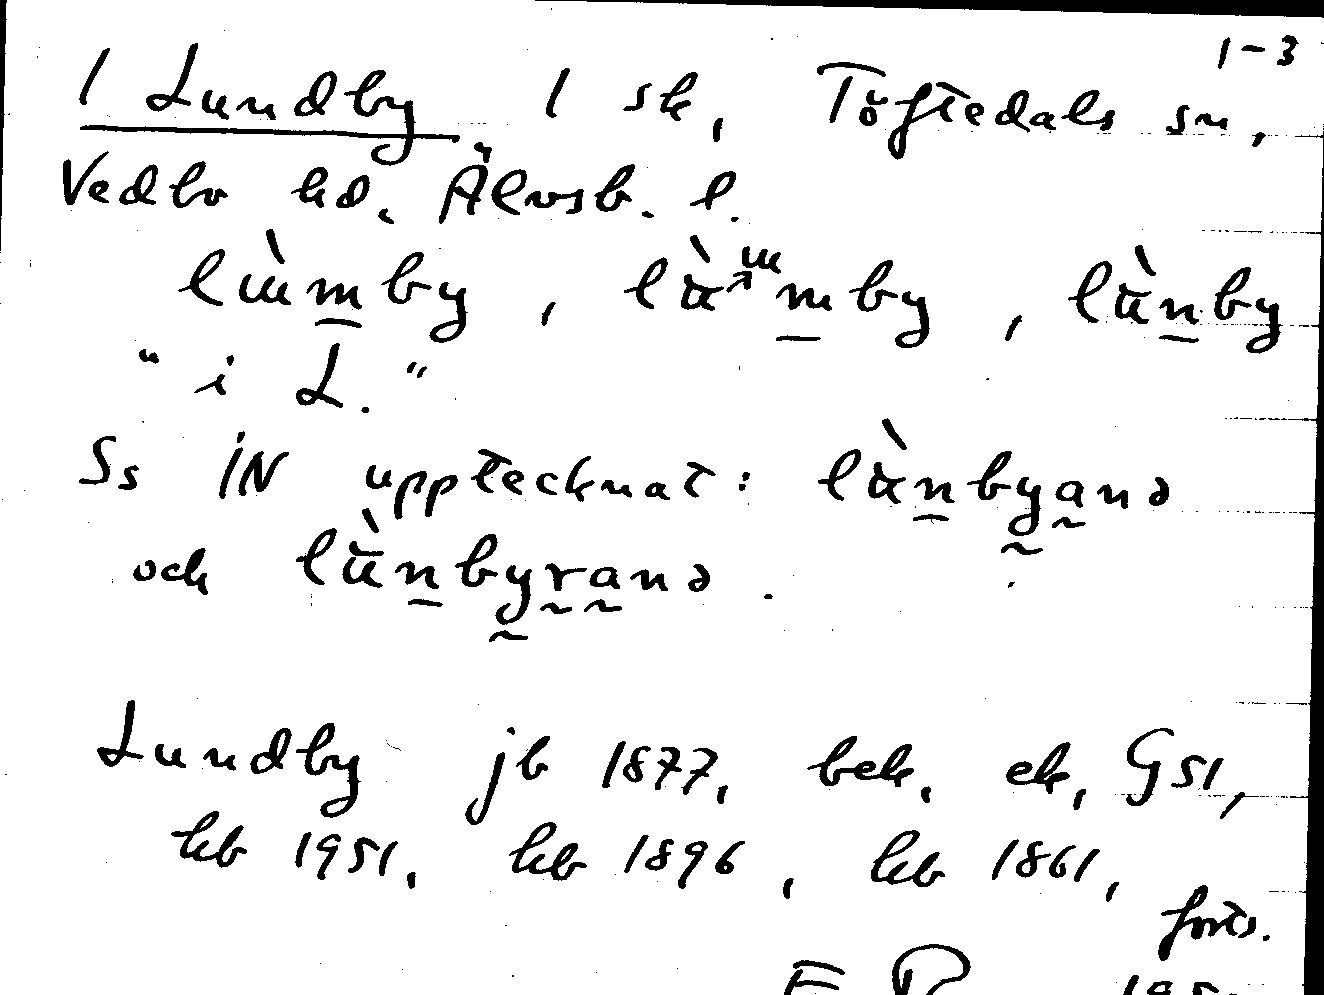 1-3
1 Lundby, 1 sk, Töftedals sn,
Vedbo hd. Älvsb. l.
lɯ̀m̲by, lᵼ̀ɯm̲by, lᵼ̀n̲by
"i L."
Ss IN upptecknat: lᵼ̀n̲by̰a̰nə
och lᵼ̀n̲by̰r̰a̰nə.
Lundby jb 1877, bek. ek, GS1,
hb 1951. hb 1896, hb 1861,
forts.